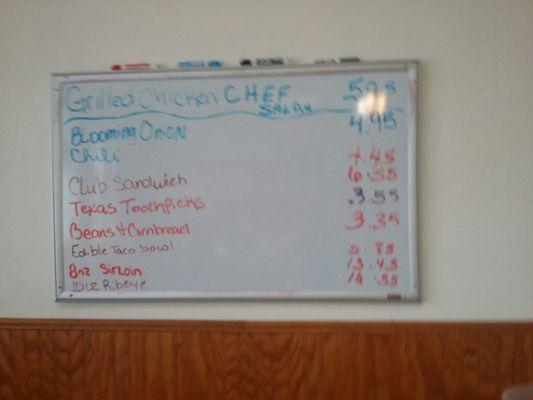 Grilled Chicken CHEF 5.95
SALAD
Blooming Onion 4.95
Chili
Club Sandwich 6.55
Texas Toothpicks 3.55
Beans & Cornbread 3.35
Edible Taco bowl
8oz Sirloin 13.45
Ribeye